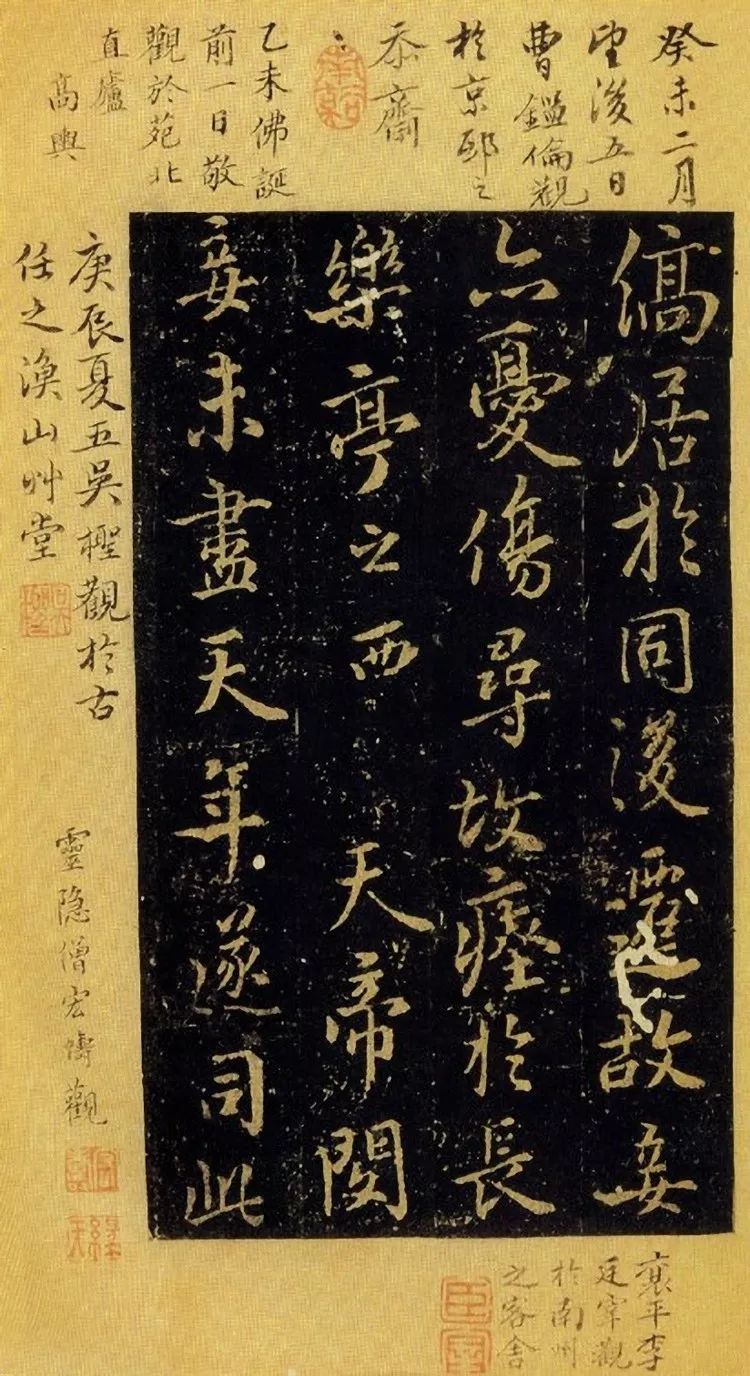 癸未二月
望後五日
曹鑑倫觀
於京邸之
忝齋
乙未佛誕
前一日敬
觀於苑北
直廬
高輿
縞居於同後遷故妾
亦憂傷尋故瘞於長
樂亭之西 天帝閔
妾未盡天年遂司此
庚辰夏五吳檉觀於古
任之漁山艸堂
靈隐僧宏濤觀
襄平李
廷宰觀
於南州
之客舍